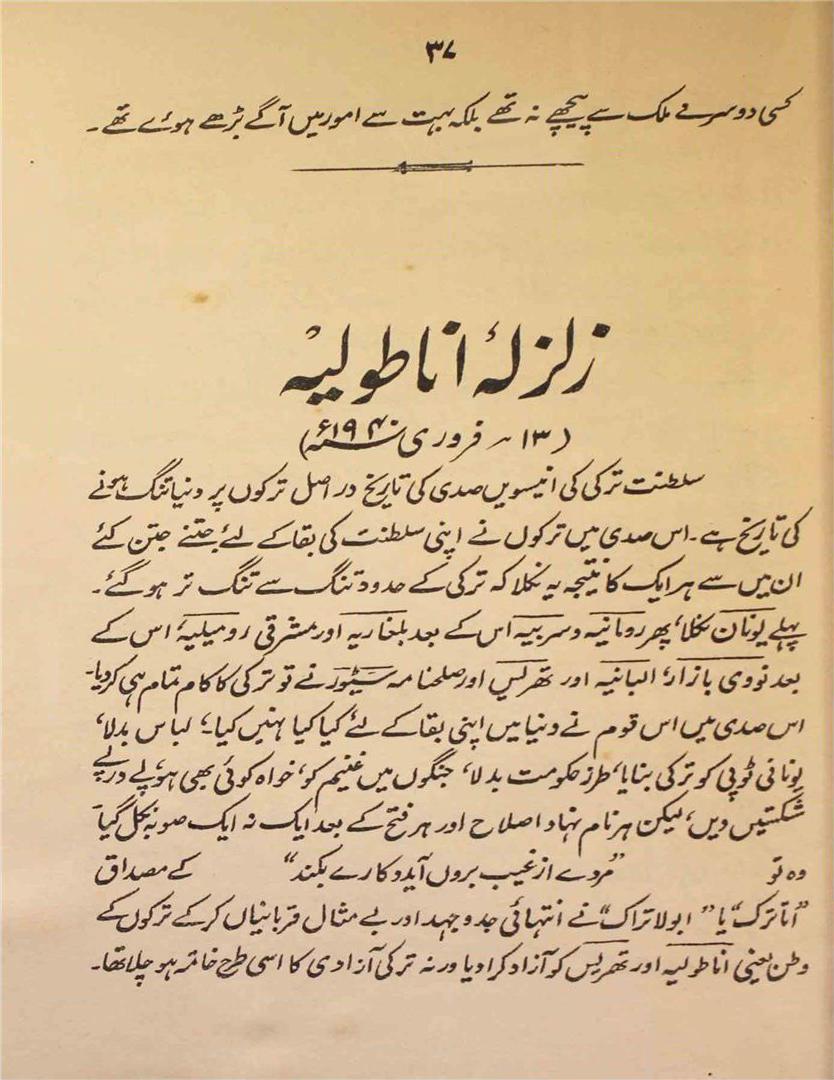 ۳۷
کسی دوسرے ملک سے پیچھے نہ تھے بلکہ بہت سے امور میں آگے بڑھے ہوئے تھے۔
زلزلۂ اناطولیہ
(۱۳ فروری ۱۹۴۰ء)
سلطنت ترکی کی انیسویں صدی کی تاریخ در اصل ترکوں پر دنیا تنگ ہونے
کی تاریخ ہے۔ اس صدی میں ترکوں نے اپنی سلطنت کی بقا کے لئے جتنے جتن کئے
ان میں سے ہر ایک کا نتیجہ یہ نکلا کہ ترکی کے حدود تنگ سے تنگ تر ہو گئے۔
پہلے یونان نکلا، پھر رومانیہ و سربیہ اس کے بعد بلغاریہ اور مشرقی رومیلیہ، اس کے
بعد نووی بازار، البانیہ اور تھریس اور صلحنامہ سیٹورنے تو ترکی کا کام تمام ہی کر دیا۔
اس صدی میں اس قوم نے دنیا میں اپنی بقا کے لئے کیا کیا نہیں کیا۔؟ لباس بدلا،
یونانی ٹوپی کو ترکی بنایا، طرز حکومت بدلا، جنگوں میں غنیم کو، خواہ کوئی بھی ہو، پے در پے
شکستیں دیں، لیکن ہر نام نہاد اصلاح اور ہر فتح کے بعد ایک نہ ایک صوبہ نکل گیا
وہ تو "مردے از غیب بروں آید و کارے بکند" کے مصداق
"اتاترک" یا "ابو لاتراک" نے انتہائی جدوجہد اور بے مثال قربانیاں کر کے ترکوں کے
وطن یعنی اناطولیہ اور تھریس کو آزاد کرا دیا ورنہ ترکی آزادی کا اسی طرح خاتمہ ہو چلا تھا۔